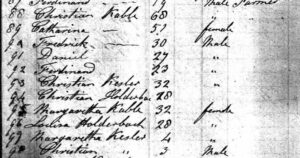 Ferdinand " 19 Male Farmer
88 Christian Kable 68 "
89 Catharine — 51 female
90 Fredrick — 30 Male
91 Daniel 27 "
92 Ferdinand 23 "
93 Christian Kesler 32 "
94 Christian Holderbach 28 "
Margaretha Kable 32 female
Louisa Holderbach 28 "
97 Margaretha Kesler 4 "
Christian " 3 Male